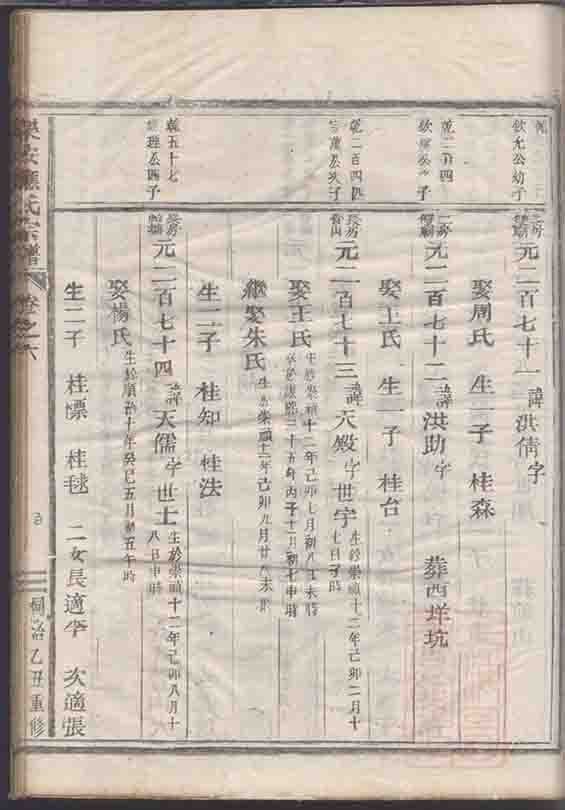 欽允公幼子
元二百七十一 諱洪倩字
娶周氏 生一子 桂森
二房
元二百七十二 諱洪助字 葬西垟坑
娶王氏 生一子 桂台
乾二百四
長房
元二百七十三 諱天殿字世宇 生於崇禎十二年己卯二月十
七日子時
娶王氏 生於崇禎十二年己卯七月初八日未時
康熙三十五年丙子十二月初七申時
繼娶朱氏 生於崇禎十二年己卯九月廿八未時
生二子 桂知 桂法
五十七
理公四子
長房
元二百七十四 諱天儒字世士 生於崇禎十二年己卯八月十
八日申時
娶楊氏 生於順治十年癸巳五月初五午時
生二子 桂慓 桂毬 二女長適李 次適張
氏宗譜 卷之六 同治乙丑重修